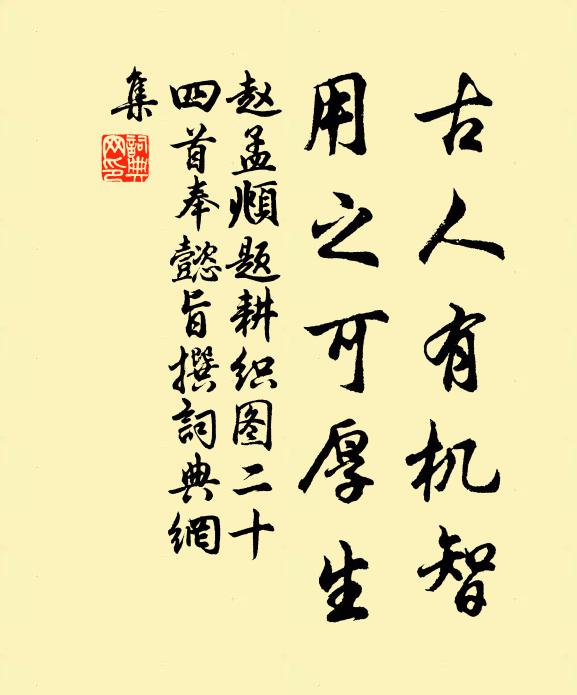 古人有机智
用之可厚生
赵孟頫题耕织图二十
四首奉懿旨撰詞典網
集
詞典網印